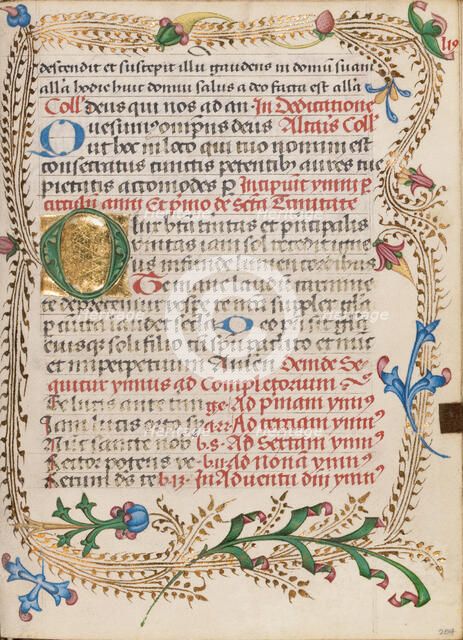 119
descendit et suscepit illu gaudens in domu sua
alla hodie huic domu salus a deo facta est alla
Coll' deus qui nos ad an In Dedicatione
Quesum omps deus Altaris Coll'
ut hoc in loco qui tuo nomini est
consecratus cunctis petentib aures tue
pietatis accomodes p Incipiut ymni p
circulu anni Et pmo de scta Trinitate
O lux bta trinitas et pncipalis
unitas iam sol recedit igne
us infunde lumen cordibus
Te mane laudu carmine
te deprecemur vespe te nra supplex gla
p cucta laudet secla Deo pri sit gla
eiusq soli filio cu spu paclito et nuc
et imperpetuum Amen Deinde Se
quitur ymnus ad Completorium
Te lucis ante ter ge Ad pmam ymn9
Iam lucis Ad terciam ymn9
Nuc sancte nob b s Ad Sextam ymn9
Rector potens ve b ii Ad Nonam ymn9
Rerum ds te b iz In Adventu dni ymn9
Heritage
204